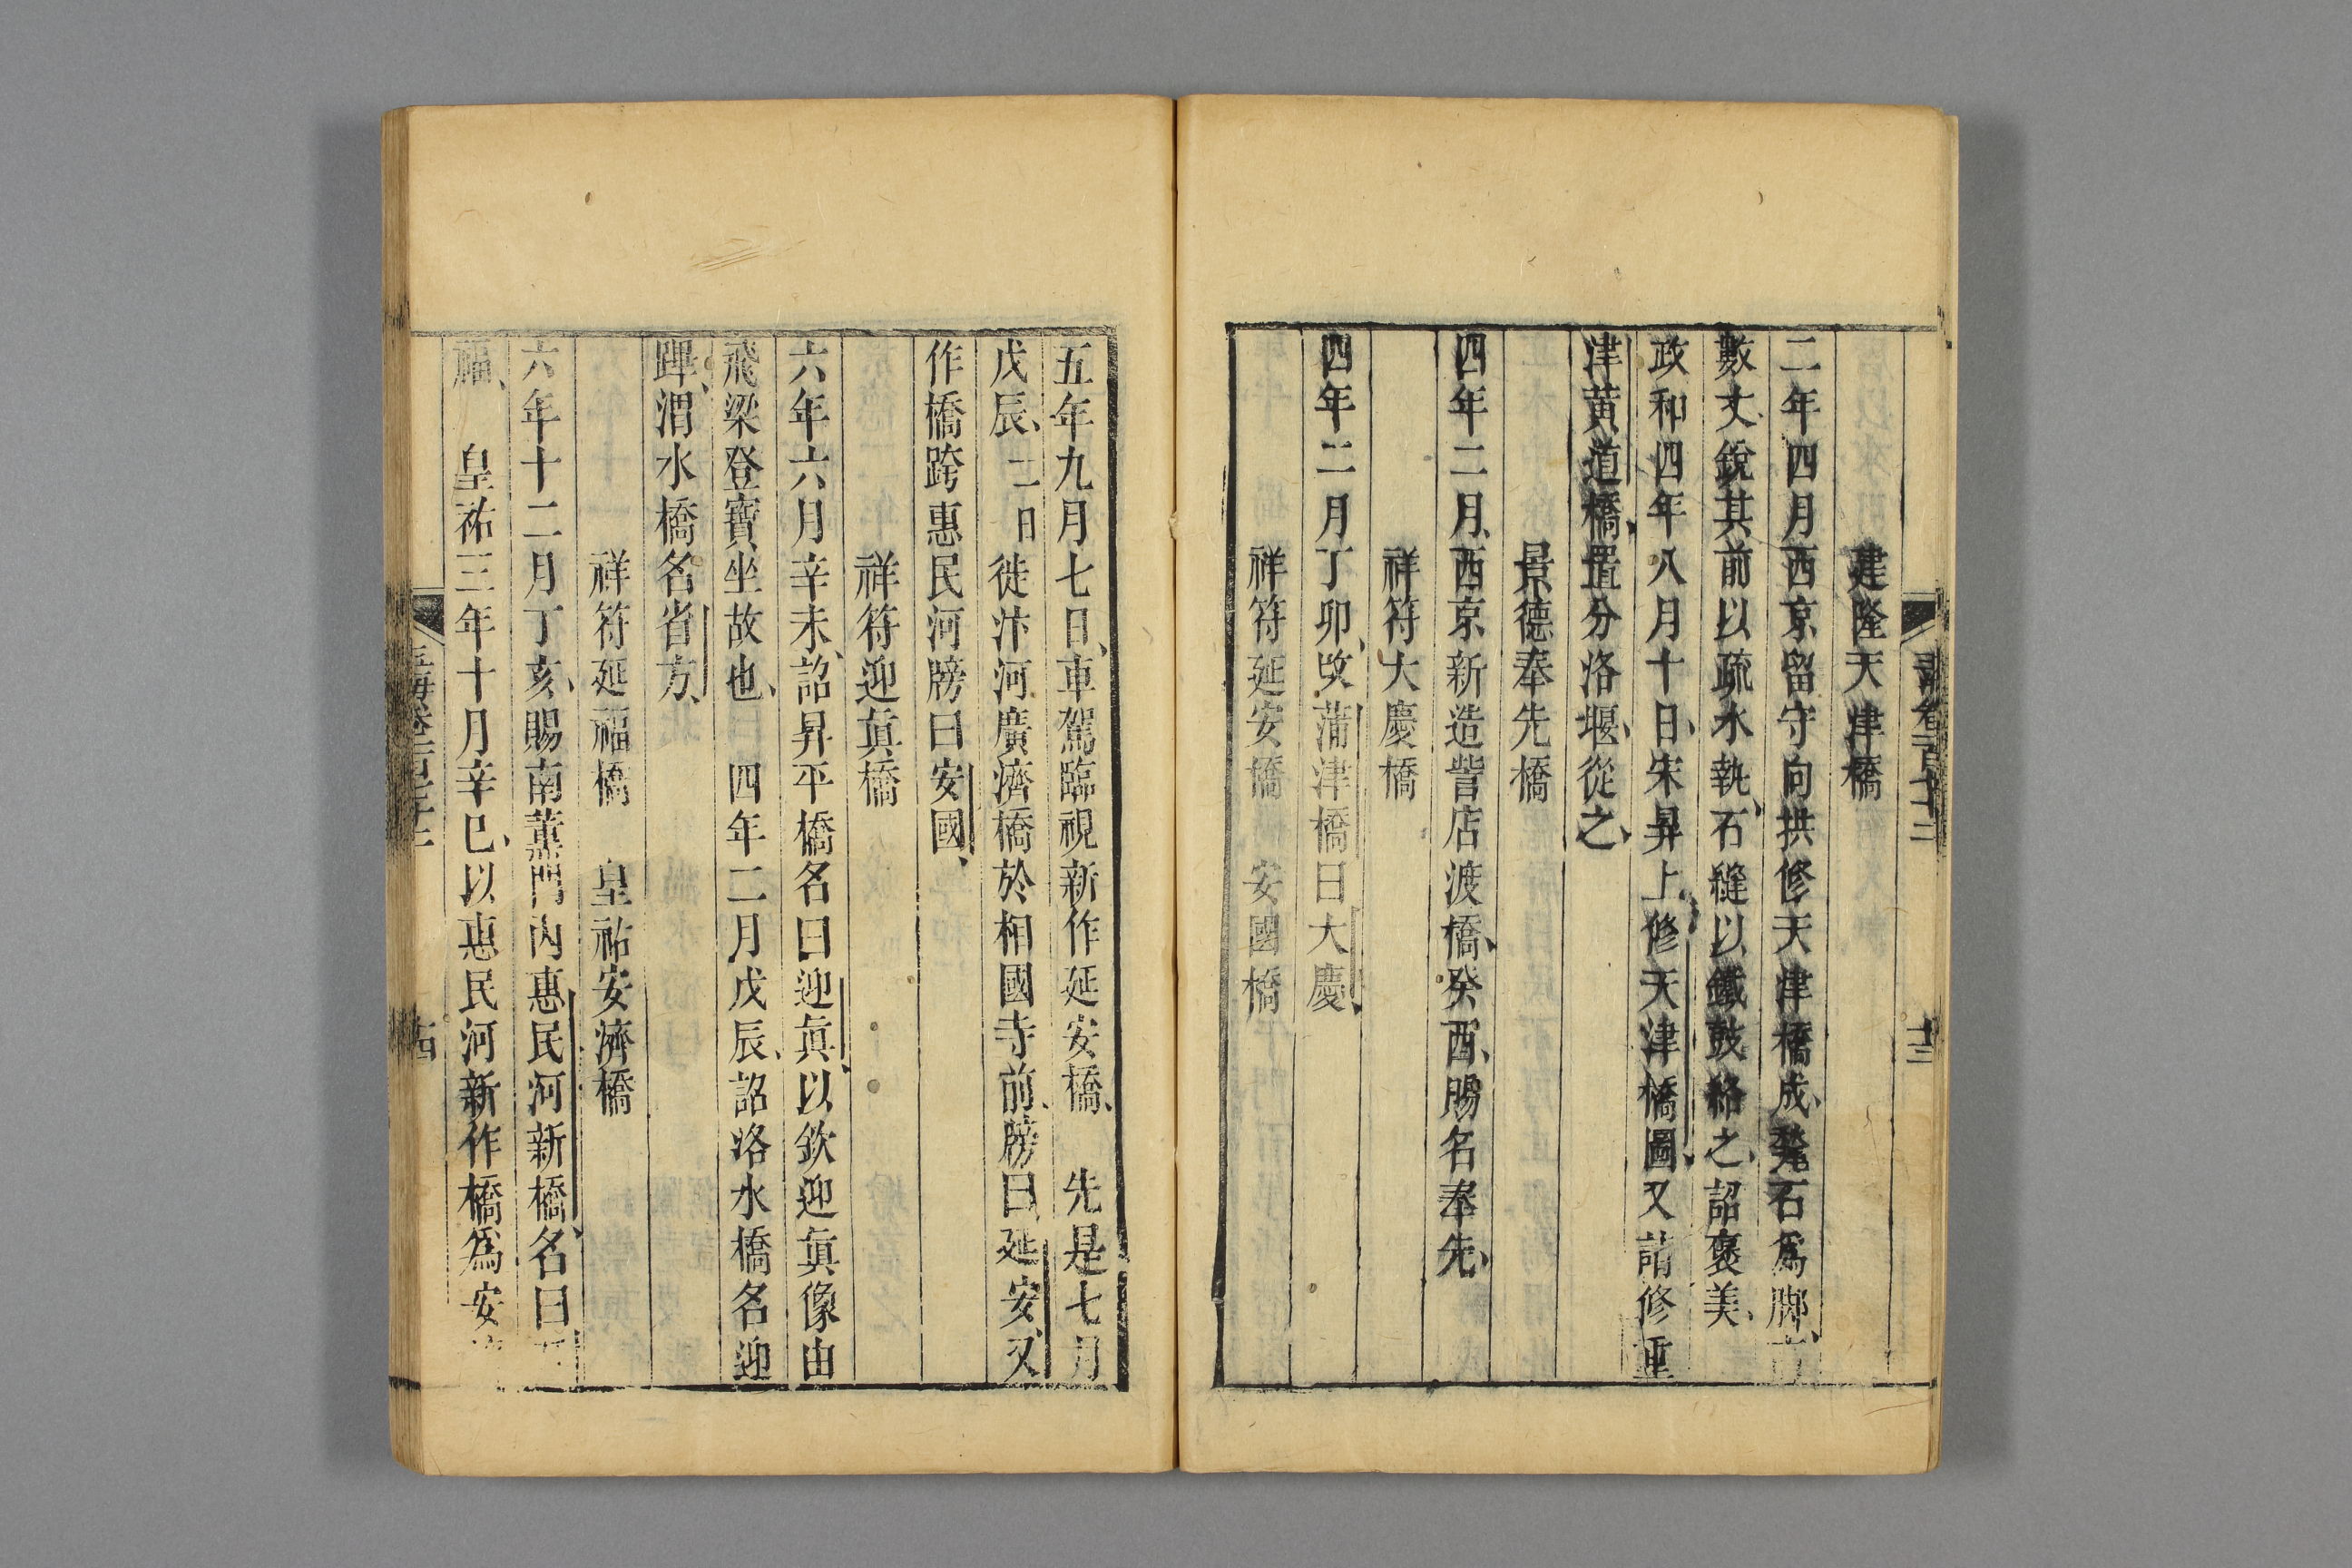 建隆天津橋
二年四月西京留守向拱修天津橋成甃石爲脚高
數丈銳其前以疏水執石縫以鐵鼓絡之詔褒美
政和四年八月十日宋昇上修天津橋圖又請修重
津黄道橋置分洛堰從之
景德奉先橋
四年二月西京新造訾店渡橋癸酉賜名奉先
祥符大慶橋
四年二月丁卯改蒲津橋曰大慶
祥符延安橋 安國橋
五年九月七日車駕臨視新作延安橋 先是七月
戊辰二日徙汴河廣濟橋於相國寺前牓曰延安又
作橋跨惠民河牓曰安國
祥符迎眞橋
六年六月辛未詔昇平橋名曰迎眞以欽迎眞像由
飛梁登寶坐故也 四年二月戊辰詔洛水橋名迎
蹕渭水橋名省方
祥符延福橋 皇祐安濟橋
六年十二月丁亥賜南薫門內惠民河新橋名曰
福 皇祐三年十月辛巳以惠民河新作橋爲安